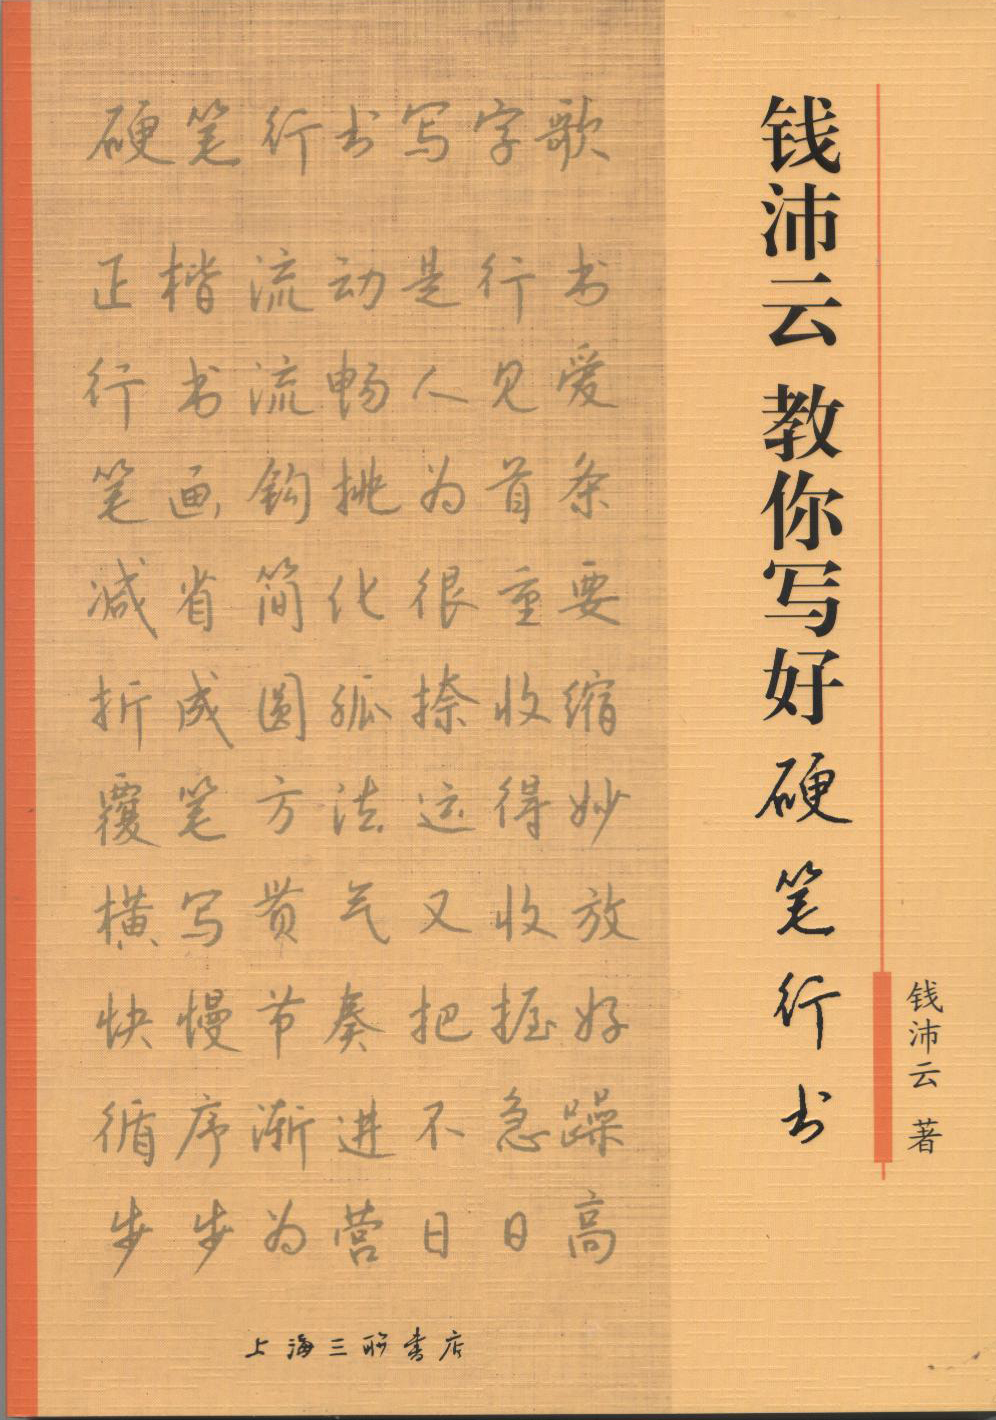 硬笔行书写字歌
正楷流动是行书
行书流畅人见爱
笔画钩挑为首条
减省简化很重要
折成圆弧捺收缩
覆笔方法运得妙
横写贯气又收放
快慢节奏把握好
循序渐进不急躁
步步为营日日高
上海三联书店
钱沛云 教你写好硬笔行书
钱沛云 著